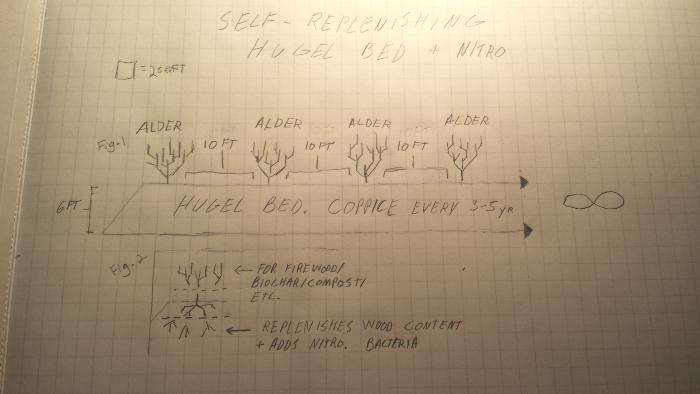 SELF-REPLENISHING
HUGEL BED + NITRO
□ = 2 SQ FT
ALDER ALDER ALDER ALDER
Fig.1
10 FT 10 FT 10 FT
6FT
HUGEL BED. COPPICE EVERY 3-5 yr
∞
Fig.2
← FOR FIREWOOD/
BIOCHAR/COMPOST/
ETC.
← REPLENISHES WOOD CONTENT
+ ADDS NITRO. BACTERIA